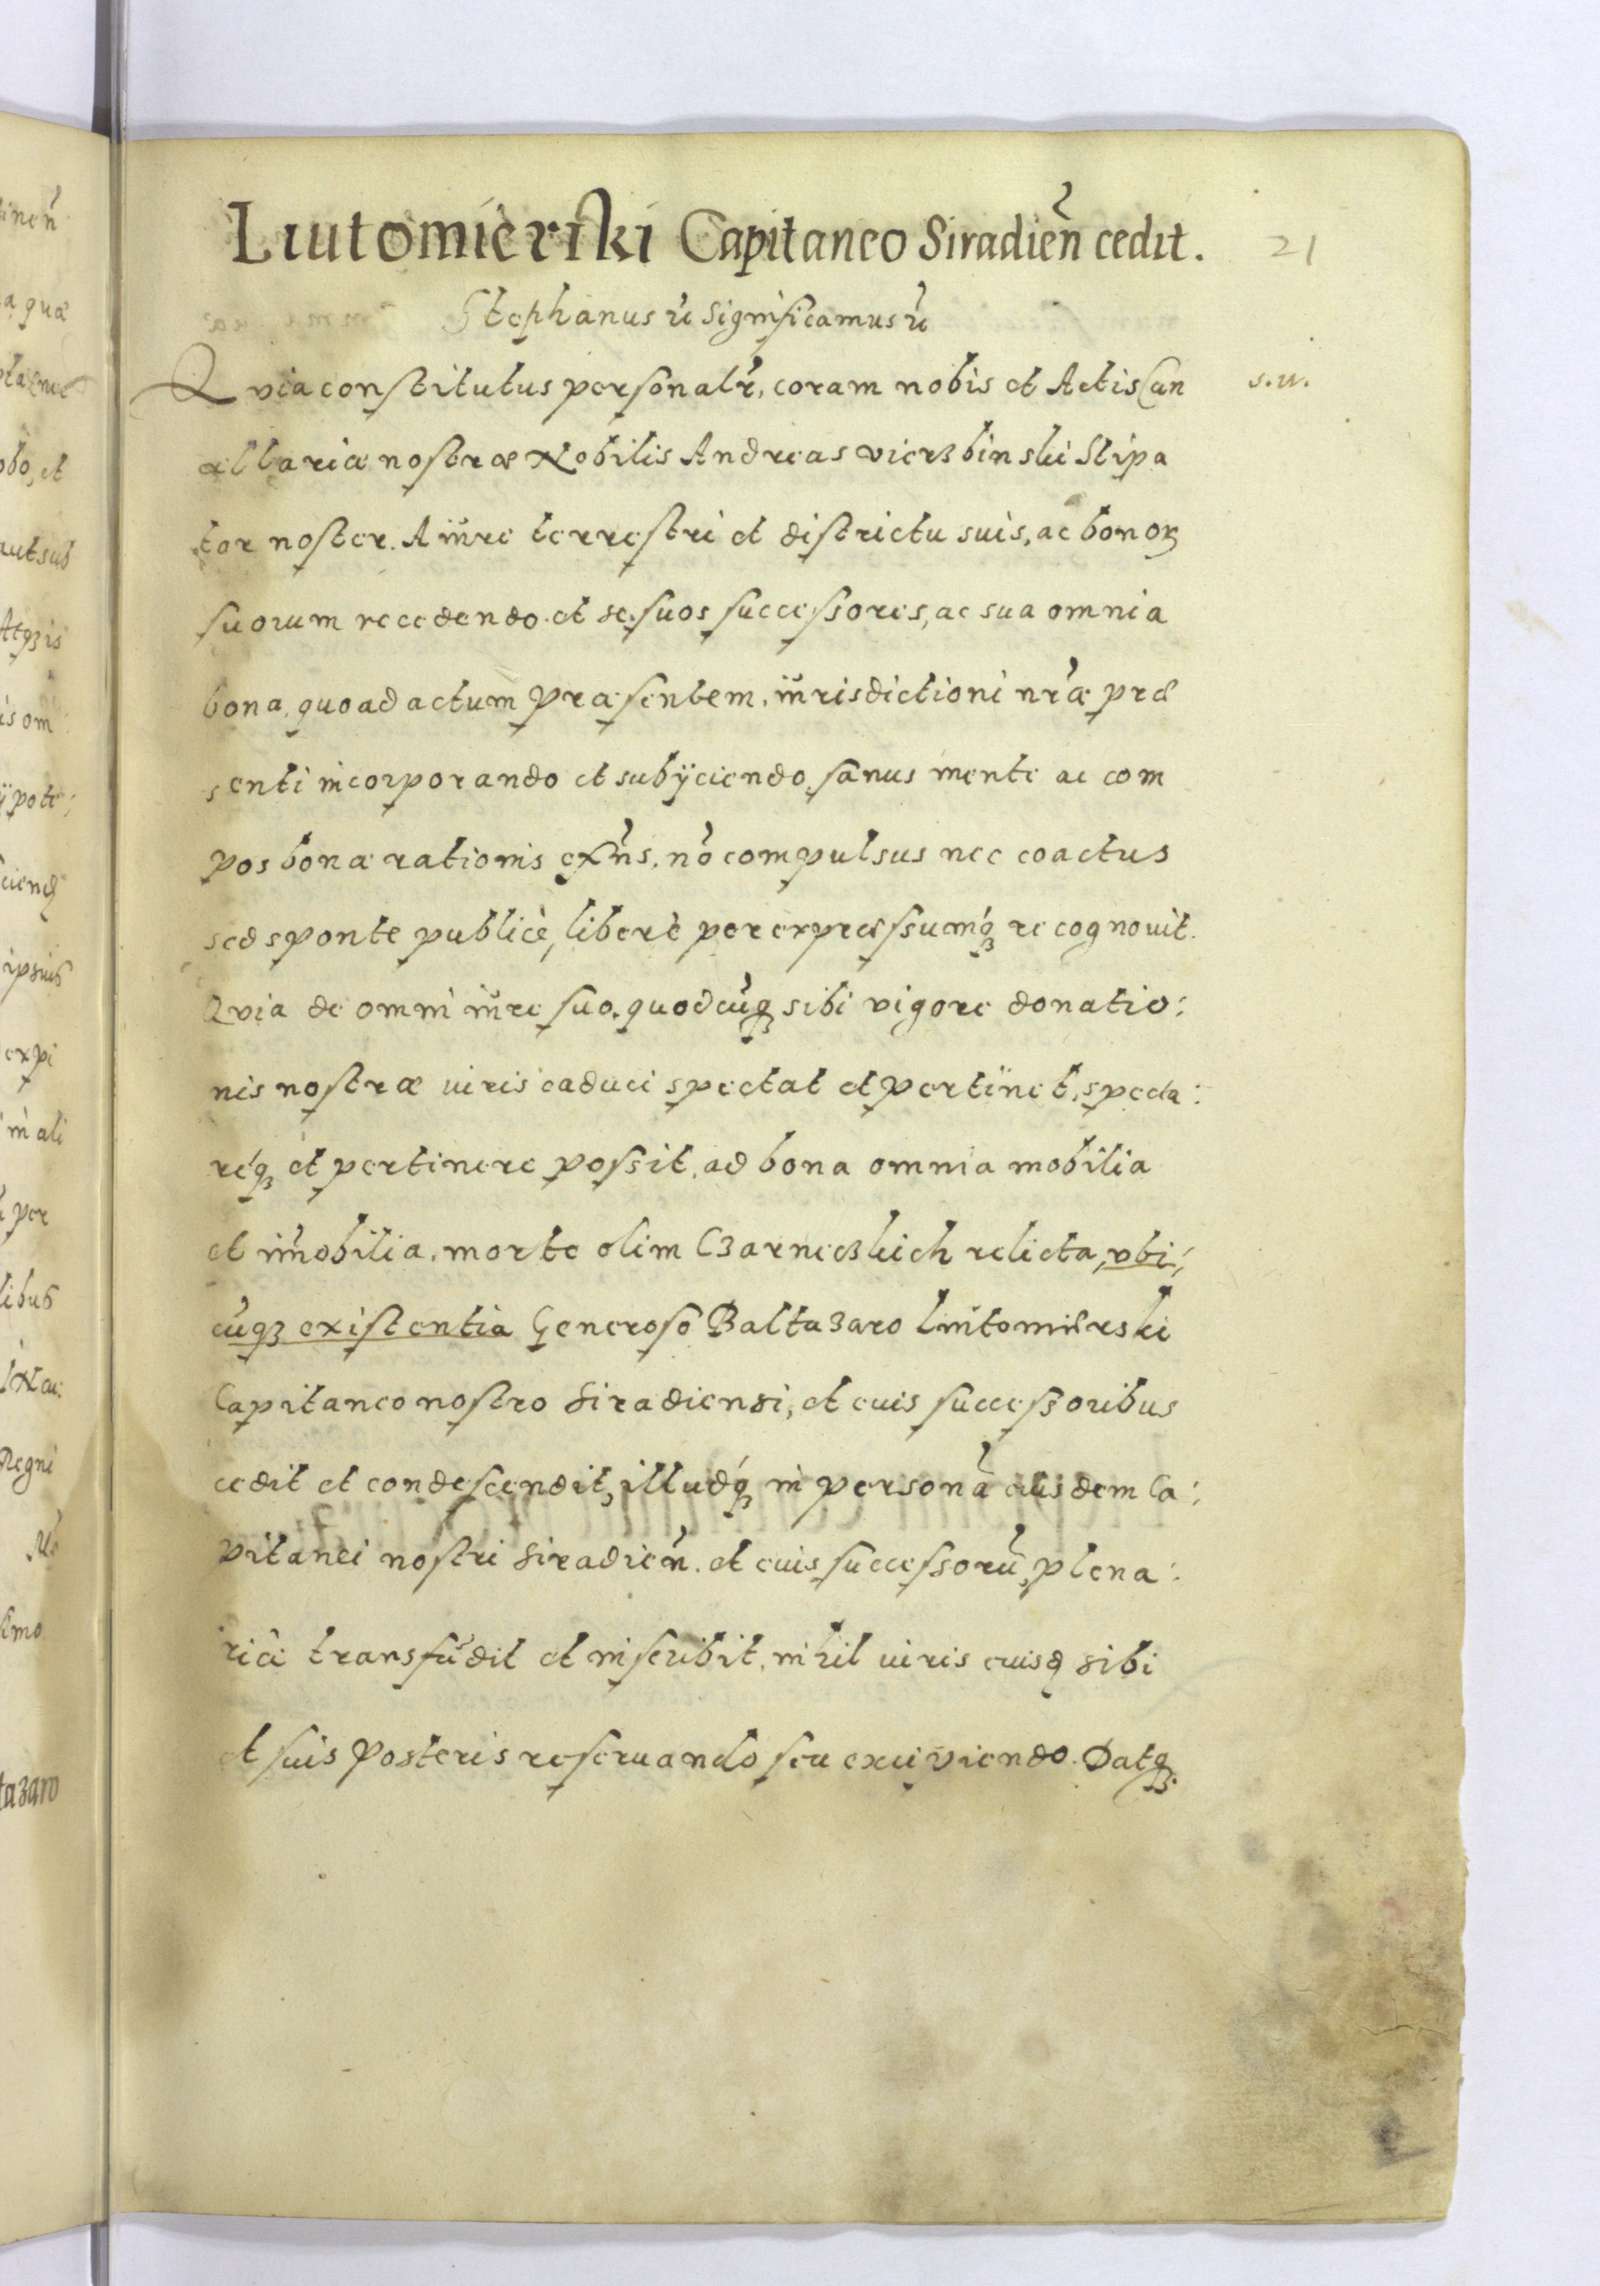 Liutomierski Capitaneo Siradien̄ cedit. 21
Stephanus ꝛc Significamus ꝛc
Qvia constitutus personalr̃, coram nobis et Actis Can s.w.
cællariæ nostræ Nobilis Andreas vierzbinski Stipa
tor noster. A iure terrestri et districtu suis, ac bonoꝝ
suorum recedendo et se, suos successores, ac sua omnia
bona, quoad actum præsentem, iurisdictioni nr̃æ præ
senti incorporando et subijciendo, sanus mente ac com
pos bonæ rationis exñs, nõ compulsus nec coactus
sed sponte publicè, liberè per expressumq́ꝫ recognovit.
Qvia de omni iure suo, quodcũqꝫ sibi vigore donatio:
nis nostræ iuris caduci spectat et pertinet, specta:
réqꝫ et pertinere possit, ad bona omnia mobilia
et im̃obilia, morte olim Czarneczkich relicta, vbi,
cũqꝫ existentia Generoso Baltazaro Liutomierski
Capitaneo nostro Siradiensi, et euis successoribus
cedit et condescendit, illudq́ꝫ in personã eiusdem Ca:
pitanei nostri Siradien̄. et euis successorũ, plena:
riè transfũdit et inscribit, nihil iuris cuisꝗ sibi
et suis posteris reservando seu excipiendo. Datqꝫ